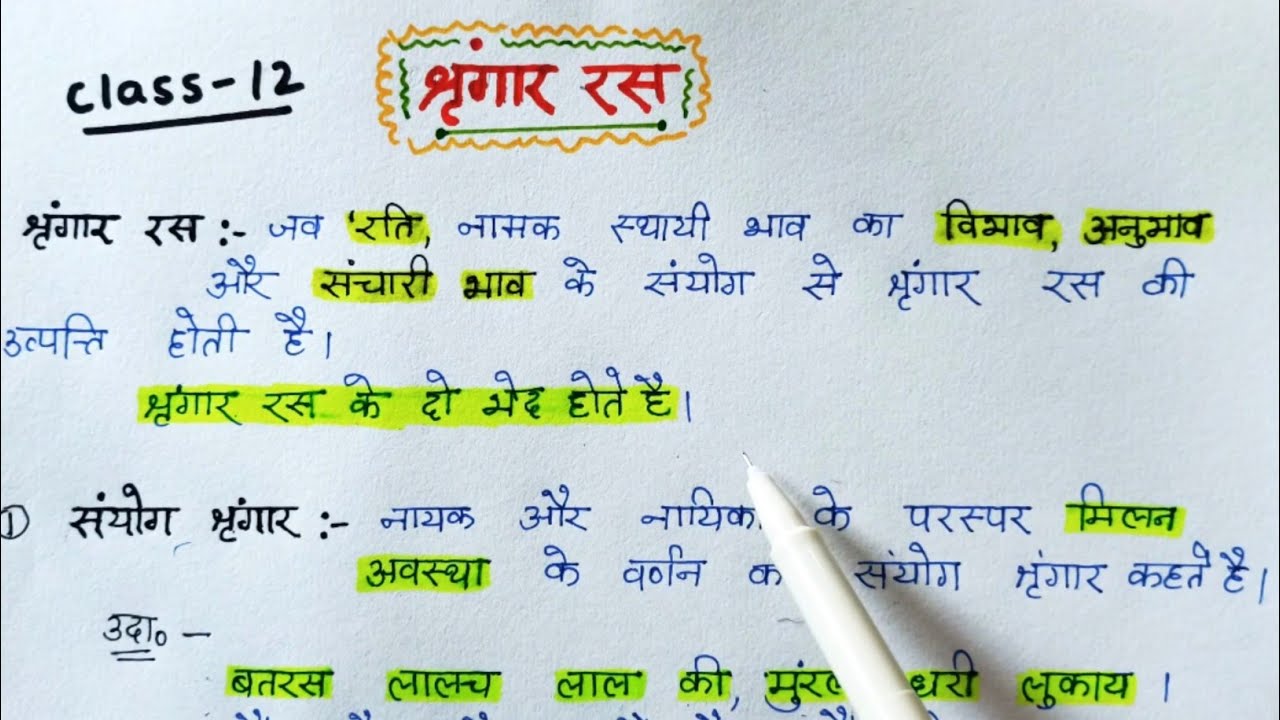 class-12
शृंगार रस
शृंगार रस :- जब 'रति, नामक स्थायी भाव का विभाव, अनुभाव
और संचारी भाव के संयोग से शृंगार रस की
उत्पत्ति होती है।
शृंगार रस के दो भेद होते है।
① संयोग शृंगार :- नायक और नायिका के परस्पर मिलन
अवस्था के वर्णन क संयोग शृंगार कहते है।
उदा० -
बतरस लालच लाल की, मुरल धरी लुकाय।